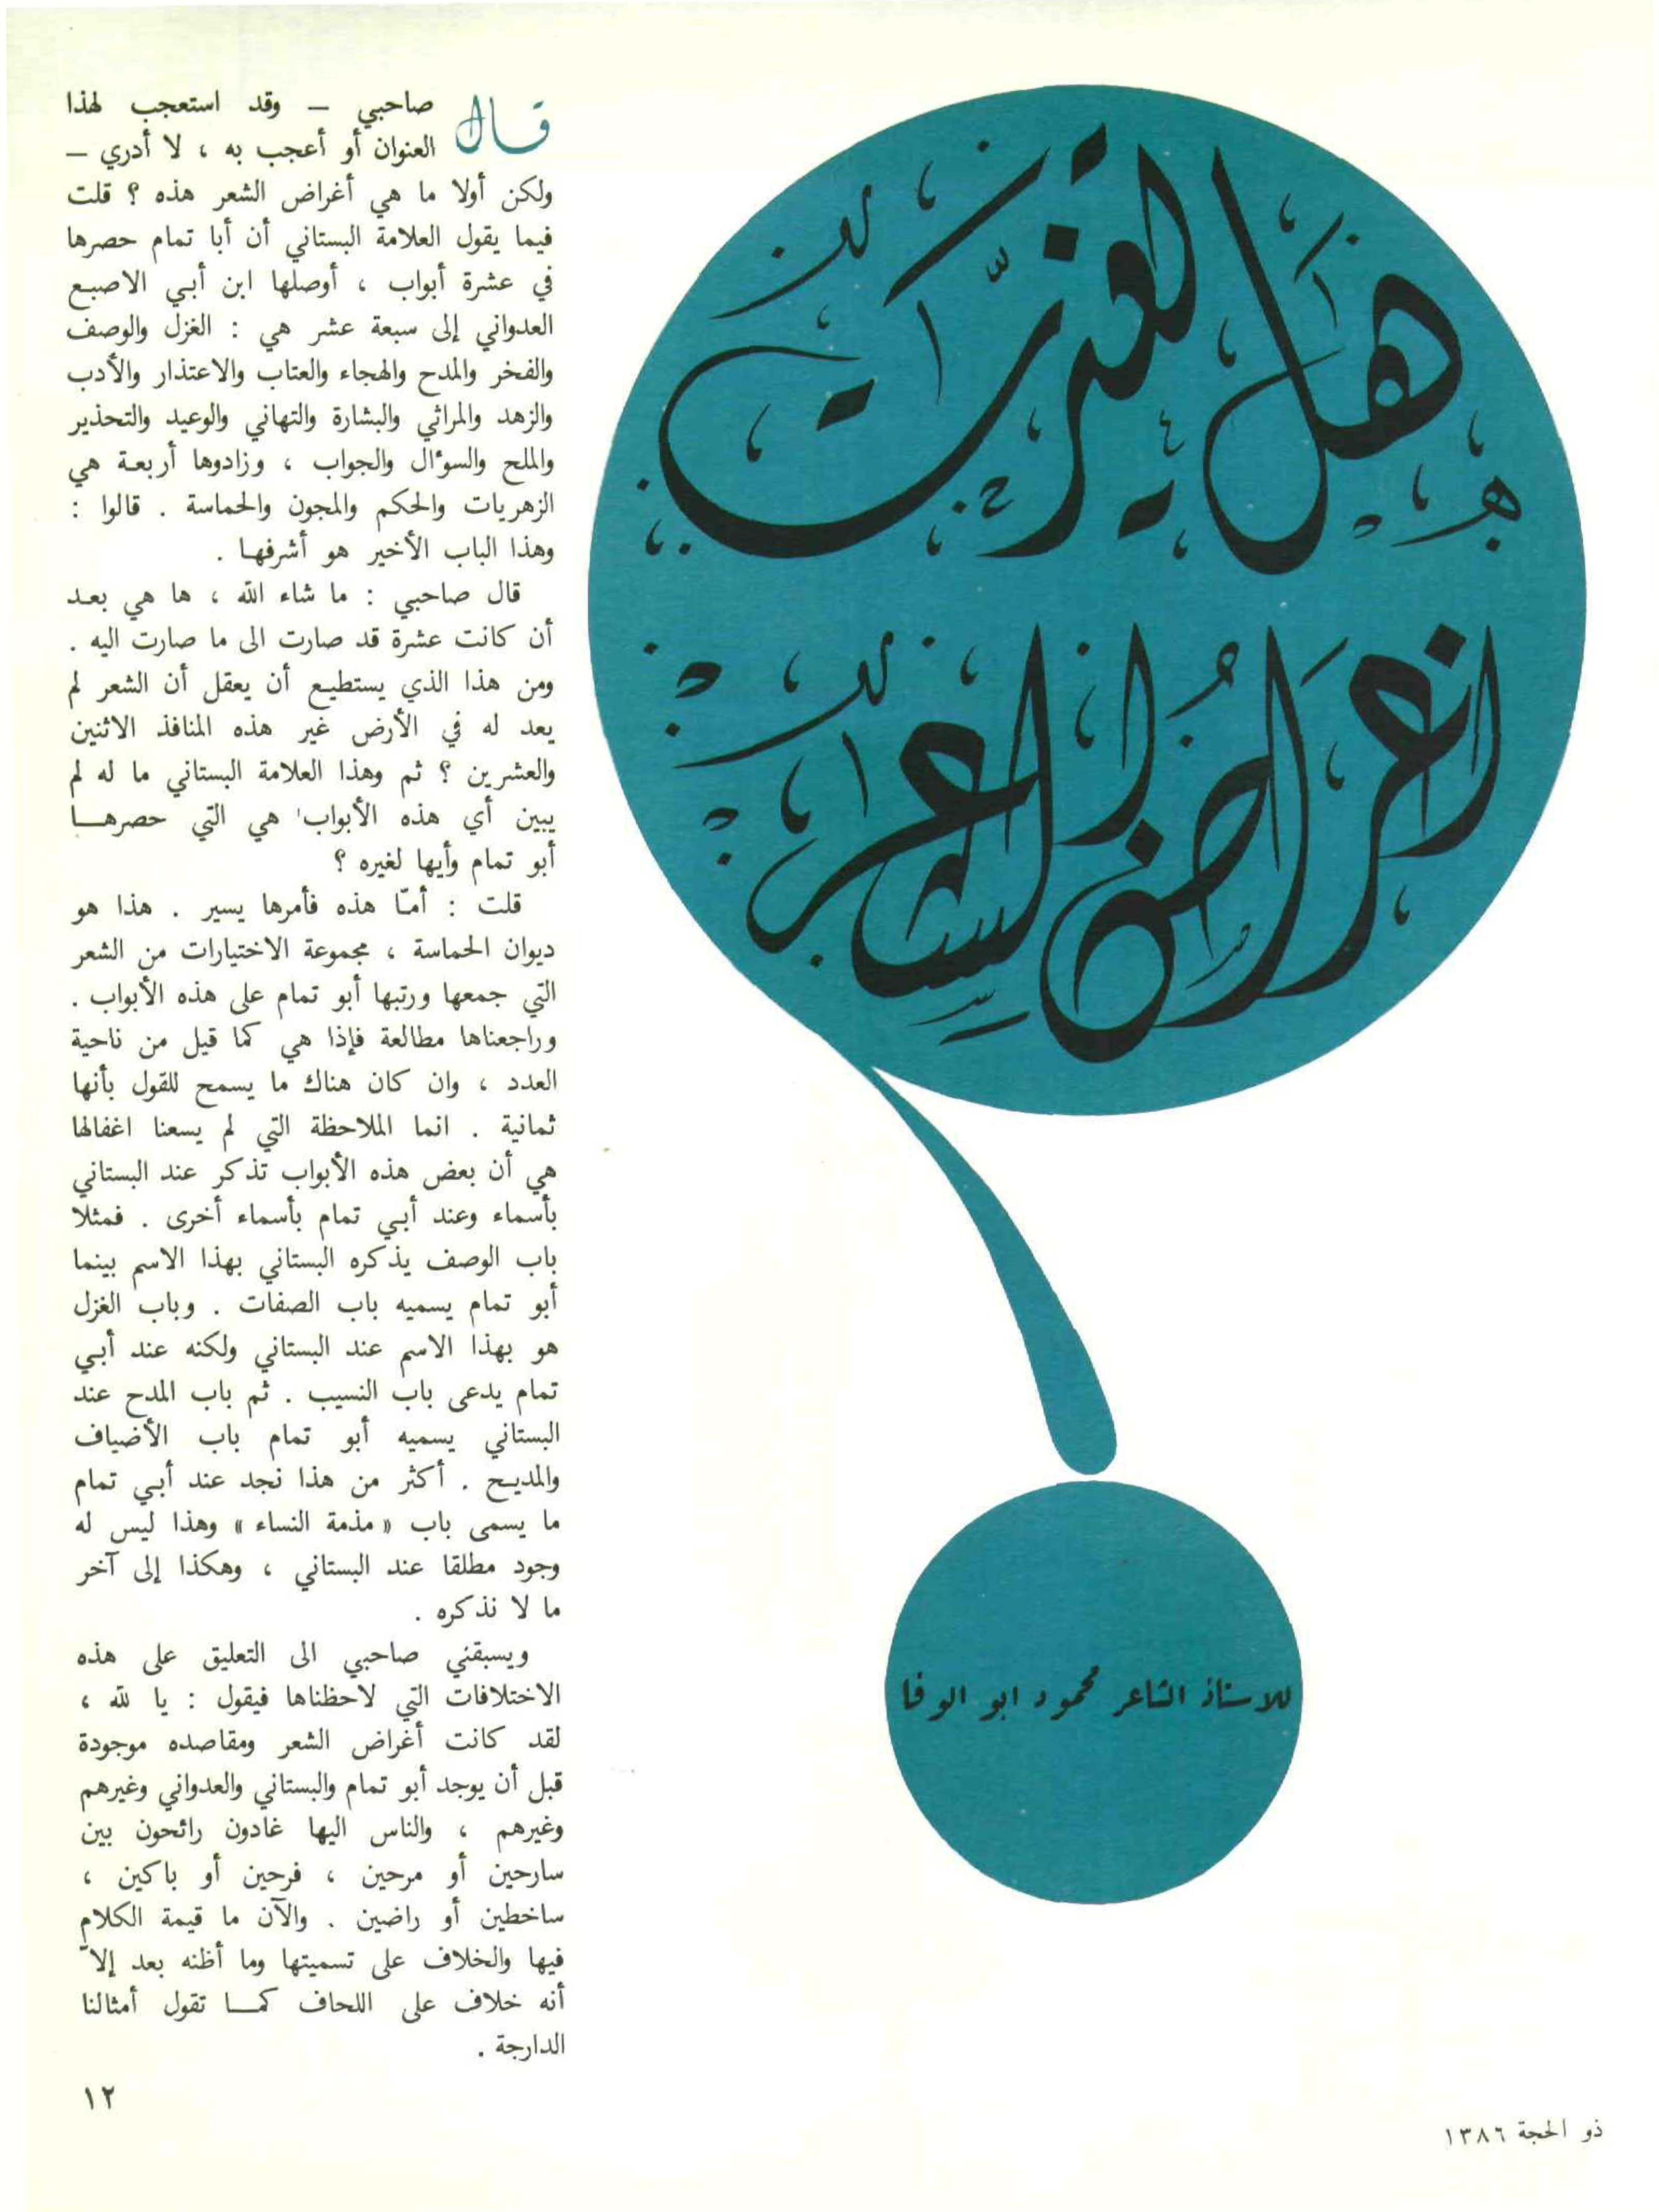 هل تغيرت
أغراض الشعر
للاستاذ الشاعر محمود ابو الوفا
قال صاحبي – وقد استعجب لهذا
العنوان أو أعجب به ، لا أدري –
ولكن أولا ما هي أغراض الشعر هذه ؟ قلت
فيما يقول العلامة البستاني أن أبا تمام حصرها
في عشرة أبواب ، أوصلها ابن أبي الاصبع
العدواني إلى سبعة عشر هي : الغزل والوصف
والفخر والمدح والهجاء والعتاب والاعتذار والأدب
والزهد والمراثي والبشارة والتهاني والوعيد والتحذير
والملح والسؤال والجواب ، وزادوها أربعة هي
الزهريات والحكم والمجون والحماسة . قالوا :
وهذا الباب الأخير هو أشرفها .
قال صاحبي : ما شاء الله ، ها هي بعد
أن كانت عشرة قد صارت الى ما صارت اليه .
ومن هذا الذي يستطيع أن يعقل أن الشعر لم
يعد له في الأرض غير هذه المنافذ الاثنين
والعشرين ؟ ثم وهذا العلامة البستاني ما له لم
يبين أي هذه الأبواب هي التي حصرهـــا
أبو تمام وأيها لغيره ؟
قلت : أمّا هذه فأمرها يسير . هذا هو
ديوان الحماسة ، مجموعة الاختيارات من الشعر
التي جمعها ورتبها أبو تمام على هذه الأبواب .
وراجعناها مطالعة فإذا هي كما قيل من ناحية
العدد ، وان كان هناك ما يسمح للقول بأنها
ثمانية . انما الملاحظة التي لم يسعنا اغفالها
هي أن بعض هذه الأبواب تذكر عند البستاني
بأسماء وعند أبي تمام بأسماء أخرى . فمثلا
باب الوصف يذكره البستاني بهذا الاسم بينما
أبو تمام يسميه باب الصفات . وباب الغزل
هو بهذا الاسم عند البستاني ولكنه عند أبي
تمام يدعى باب النسيب . ثم باب المدح عند
البستاني يسميه أبو تمام باب الأضياف
والمديح . أكثر من هذا نجد عند أبي تمام
ما يسمى باب « مذمة النساء » وهذا ليس له
وجود مطلقا عند البستاني ، وهكذا إلى آخر
ما لا نذكره .
ويسبقني صاحبي الى التعليق على هذه
الاختلافات التي لاحظناها فيقول : يا لله ،
لقد كانت أغراض الشعر ومقاصده موجودة
قبل أن يوجد أبو تمام والبستاني والعدواني وغيرهم
وغيرهم ، والناس اليها غادون رائحون بين
سارحين أو مرحين ، فرحين أو باكين ،
ساخطين أو راضين . والآن ما قيمة الكلام
فيها والخلاف على تسميتها وما أظنه بعد إلاّ
أنه خلاف على اللحاف كمـــا تقول أمثالنا
الدارجة .
١٢
ذو الحجة ١٣٨٦